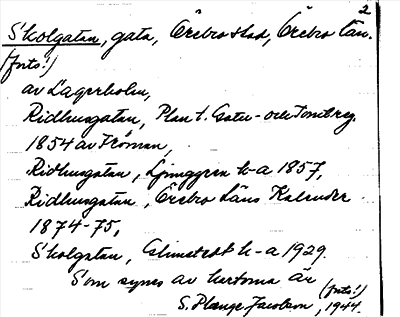 2
Skolgatan, gata, Örebro stad, Örebro län.
(forts.)
av Lagerholm,
Ridhusgatan, Plan t. Gatu- och Tomtreg.
1854 av Fröman,
Ridhusgatan, Ljunggren k-a 1857,
Ridhusgatan, Örebro Läns Kalender
1874-75,
Skolgatan, Almstedt k-a 1929.
Som synes av kartorna är
(forts.)
S. Plange Jacobson, 1944.